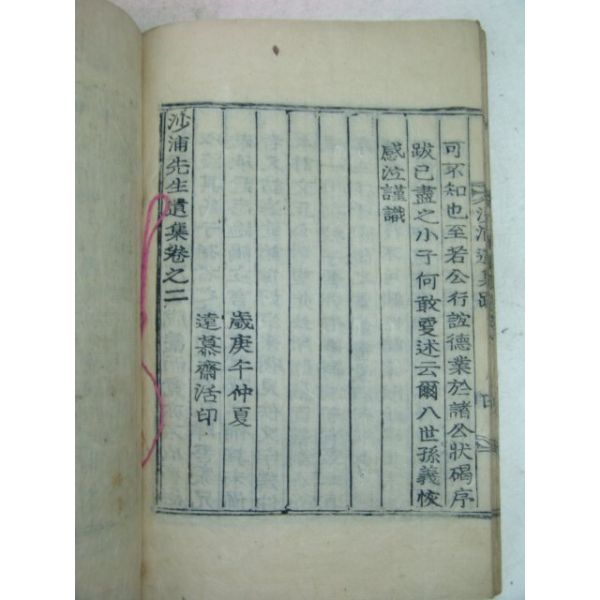 可不知也至若公行誼德業於諸公狀碣序
跋已盡之小子何敢更述云爾八世孫義
感泣謹識
歲庚午仲夏
遠慕齋活印
沙浦先生遺集卷之二